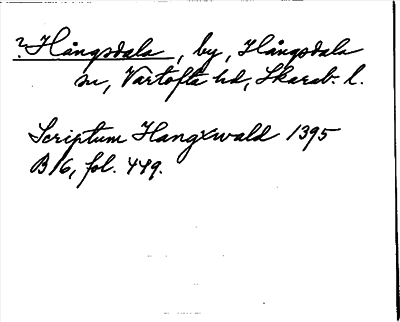 ? Hångsdala, by, Hångsdala
sn, Vartofta hd, Skarab. l.
Scriptum Hangxwald 1395
B 16, fol. 449.